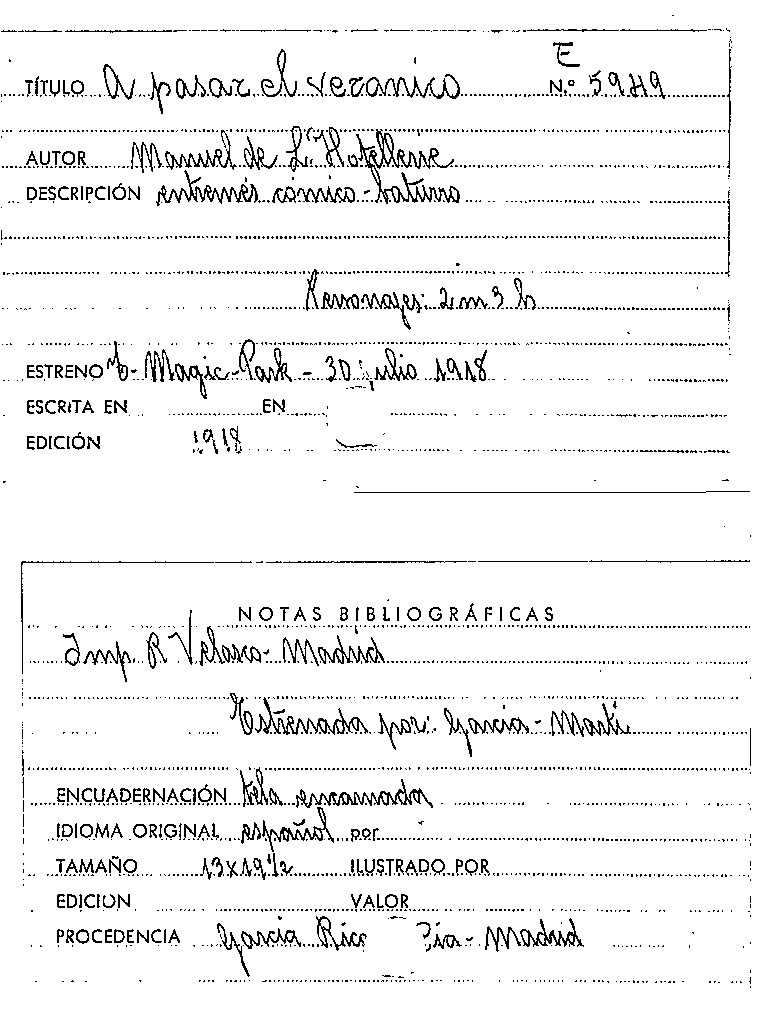 E
TÍTULO A pasar el veranico N.º 5949
AUTOR Manuel de L'Hotellerie
DESCRIPCIÓN entremés cómico-baturro
Personajes: 2 m 3 h
ESTRENO Magic-Park - 30 julio 1918
ESCRITA EN EN
EDICIÓN 1918
NOTAS BIBLIOGRÁFICAS
Imp. R Velasco - Madrid
Estrenada por: García - Martí
ENCUADERNACIÓN tela encarnada
IDIOMA ORIGINAL español por
TAMAÑO 13x19½ ILUSTRADO POR
EDICION VALOR
PROCEDENCIA García Rico Cía - Madrid